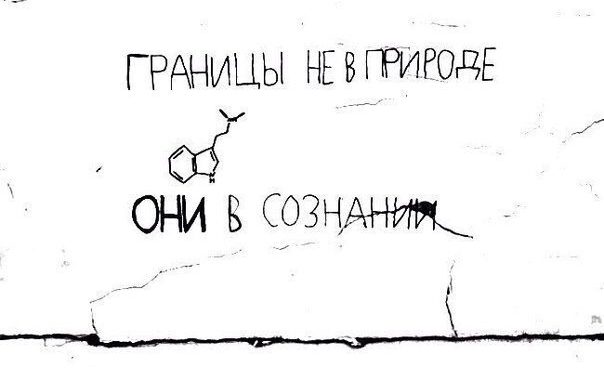 ГРАНИЦЫ НЕ В ПРИРОДЕ
ОНИ В СОЗНАНИИ